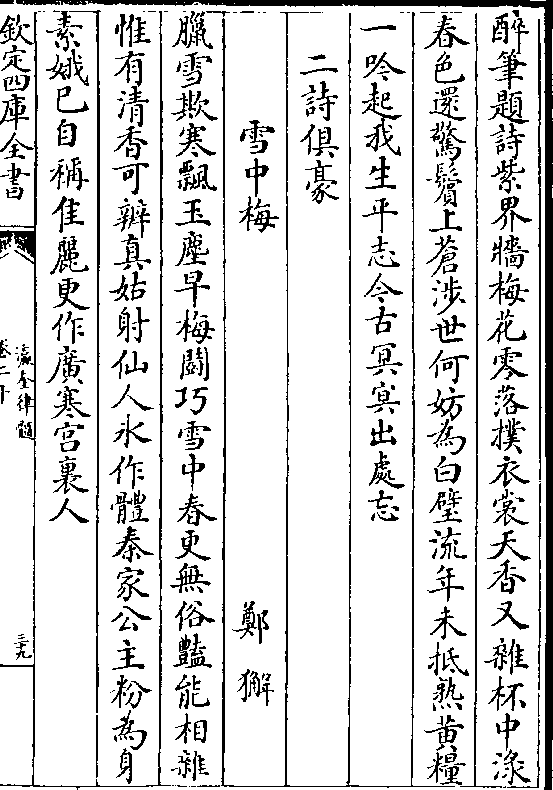 醉筆題詩紫界牆梅花零落撲衣裳天香又雜杯中渌
春色還驚鬢上蒼涉世何妨為白璧流年未抵熟黄糧
一吟起我生平志今古冥冥出處忘
二詩俱豪
雪中梅　鄭獬
臘雪欺寒飄玉塵早梅鬭巧雪中春更無俗豔能相雜
惟有清香可辨真姑射仙人氷作體秦家公主粉為身
素娥已自稱佳麗更作廣寒宮裏人
欽定四庫全書
瀛奎律髓
卷二十
三九